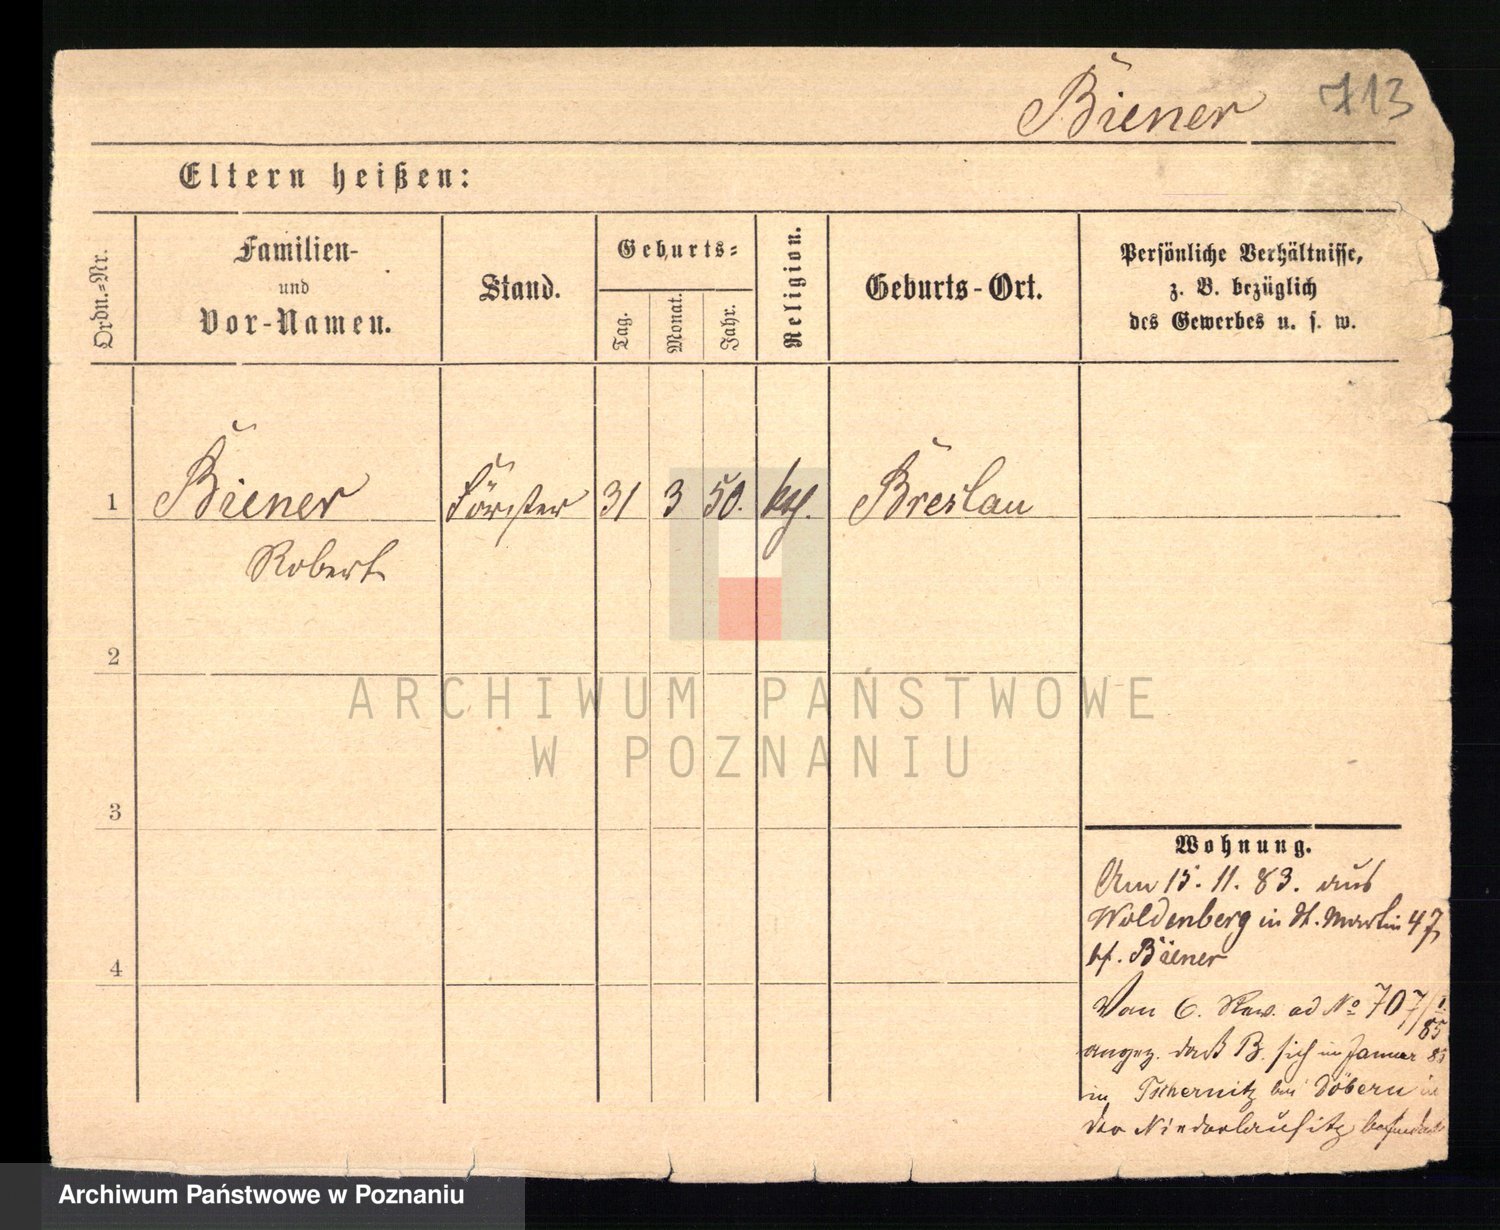 Biener 713
Eltern heißen:
Ordn.-Nr.
Familien-
und
Vor-Namen.
Stand.
Geburts-
Tag.
Monat.
Jahr.
Religion.
Geburts-Ort.
Persönliche Verhältnisse,
z. B. bezüglich
des Gewerbes u. s. w.
1 Biener Förster 31 3 50. kth. Breslau
Robert
2
3
4
Wohnung.
Am 15. 11. 83. aus
Woldenberg in St. Martin 47
bf. Biener
Vom 6. Rev. ad No 707/I 85
angez. daß B. sich im Januar 85
in Tschernitz bei Döbern in
der Niederlausitz befindet
ARCHIWUM PAŃSTWOWE
W POZNANIU
Archiwum Państwowe w Poznaniu